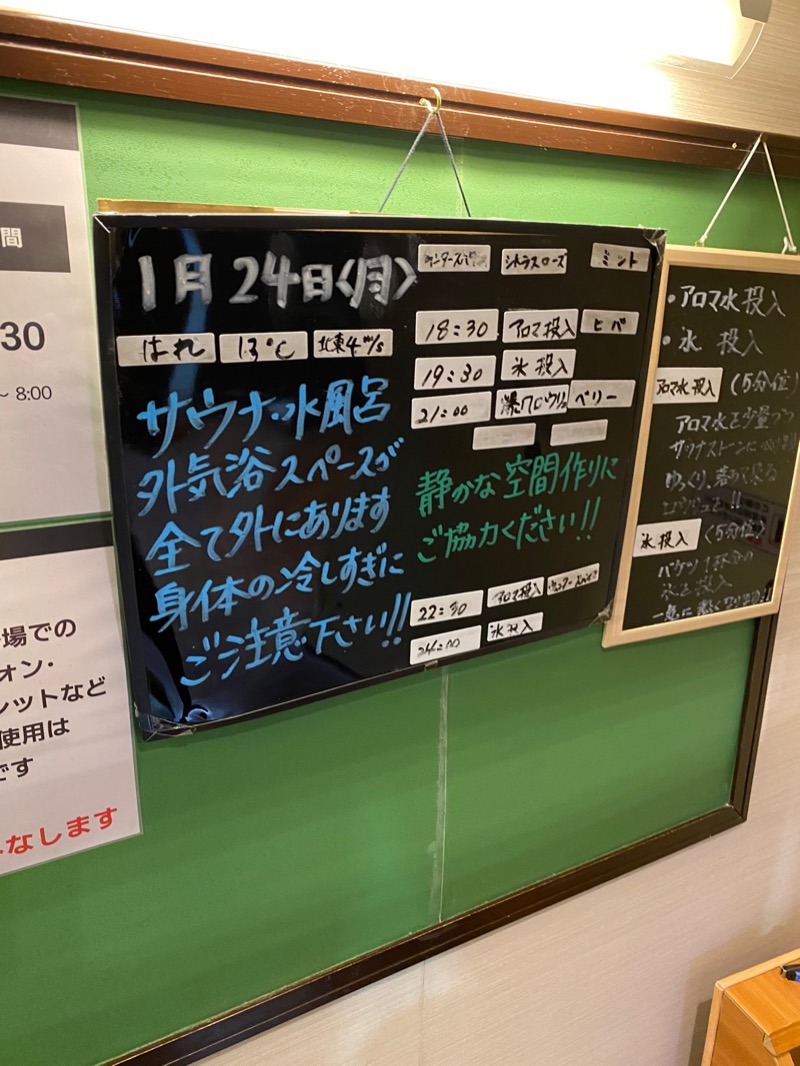 間
30
～ 8:00
場での
オン・
レットなど
使用は
です
なします
1月24日〈月〉
シトラスローズ
ミント
はれ
13℃
北東4m/s
サウナ・水風呂
外気浴スペースが
全て外にあります
身体の冷しすぎに
ご注意下さい!!
18:30
アロマ投入
ヒバ
19:30
氷投入
21:00
ベリー
静かな空間作りに
ご協力ください!!
22:30
アロマ投入
24:00
氷投入
・アロマ水投入
・氷 投入
アロマ水投入
(5分位)
アロマ水を少量づつ
ゆっくり
氷投入
(5分位)
バケツ1杯分の
氷を投入